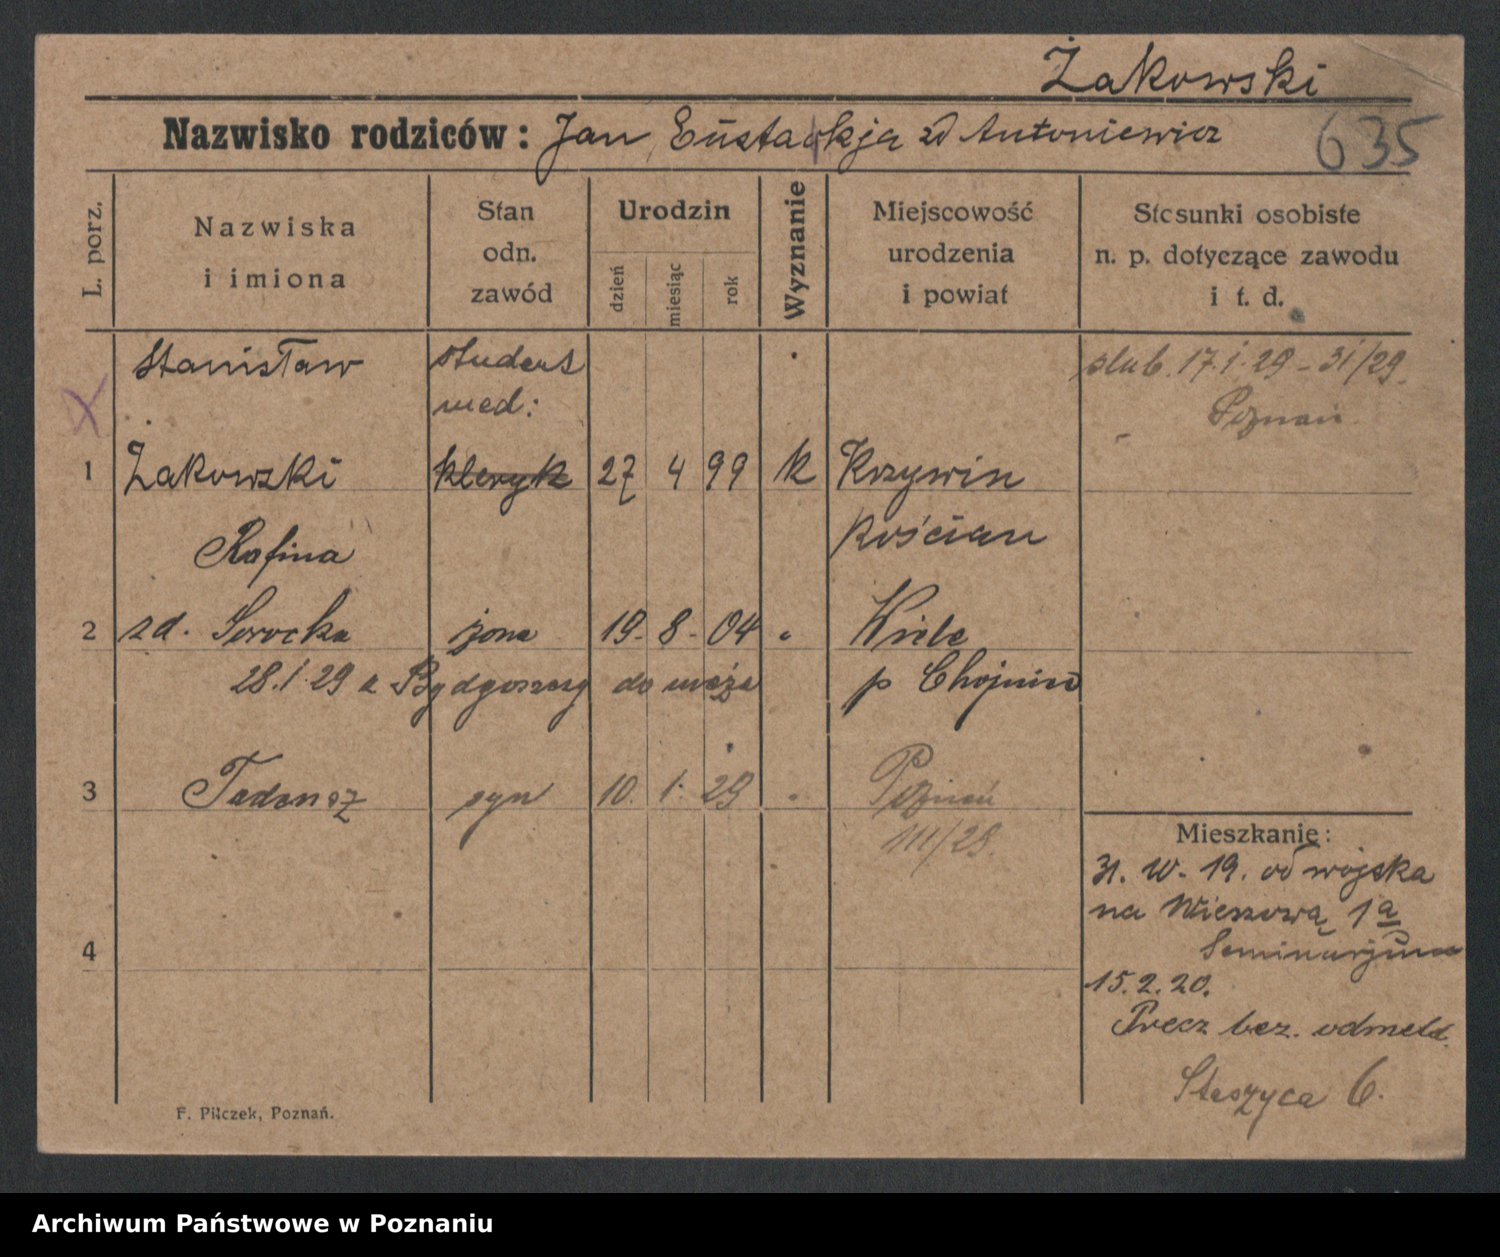 Żakowski
Nazwisko rodziców: Jan, Eustachja zd Antoniewicz
635
L. porz.
Nazwiska
i imiona
Stan
odn.
zawód
Urodzin
dzień
miesiąc
rok
Wyznanie
Miejscowość
urodzenia
i powiat
Stosunki osobiste
n. p. dotyczące zawodu
i t. d.
Stanisław student
med:
1 Żakowski kleryk 27 4 99 k Krzywin
Kościan
ślub. 17.1.29 - 31/29.
Poznań
Rafina
2 zd. Serocka żona 19. 8. 04 " Wiele
28.1.29 z Bydgoszczy do męża p Chojnice
3 Tadeusz syn 10. 1. 29 " Poznań
111/29.
4
Mieszkanie:
31. W. 19. od wojska
na Wieżową 1a
Seminarjum
15.2.20.
Precz bez. odmeld.
Staszyca 6.
F. Pilczek, Poznań.
Archiwum Państwowe w Poznaniu